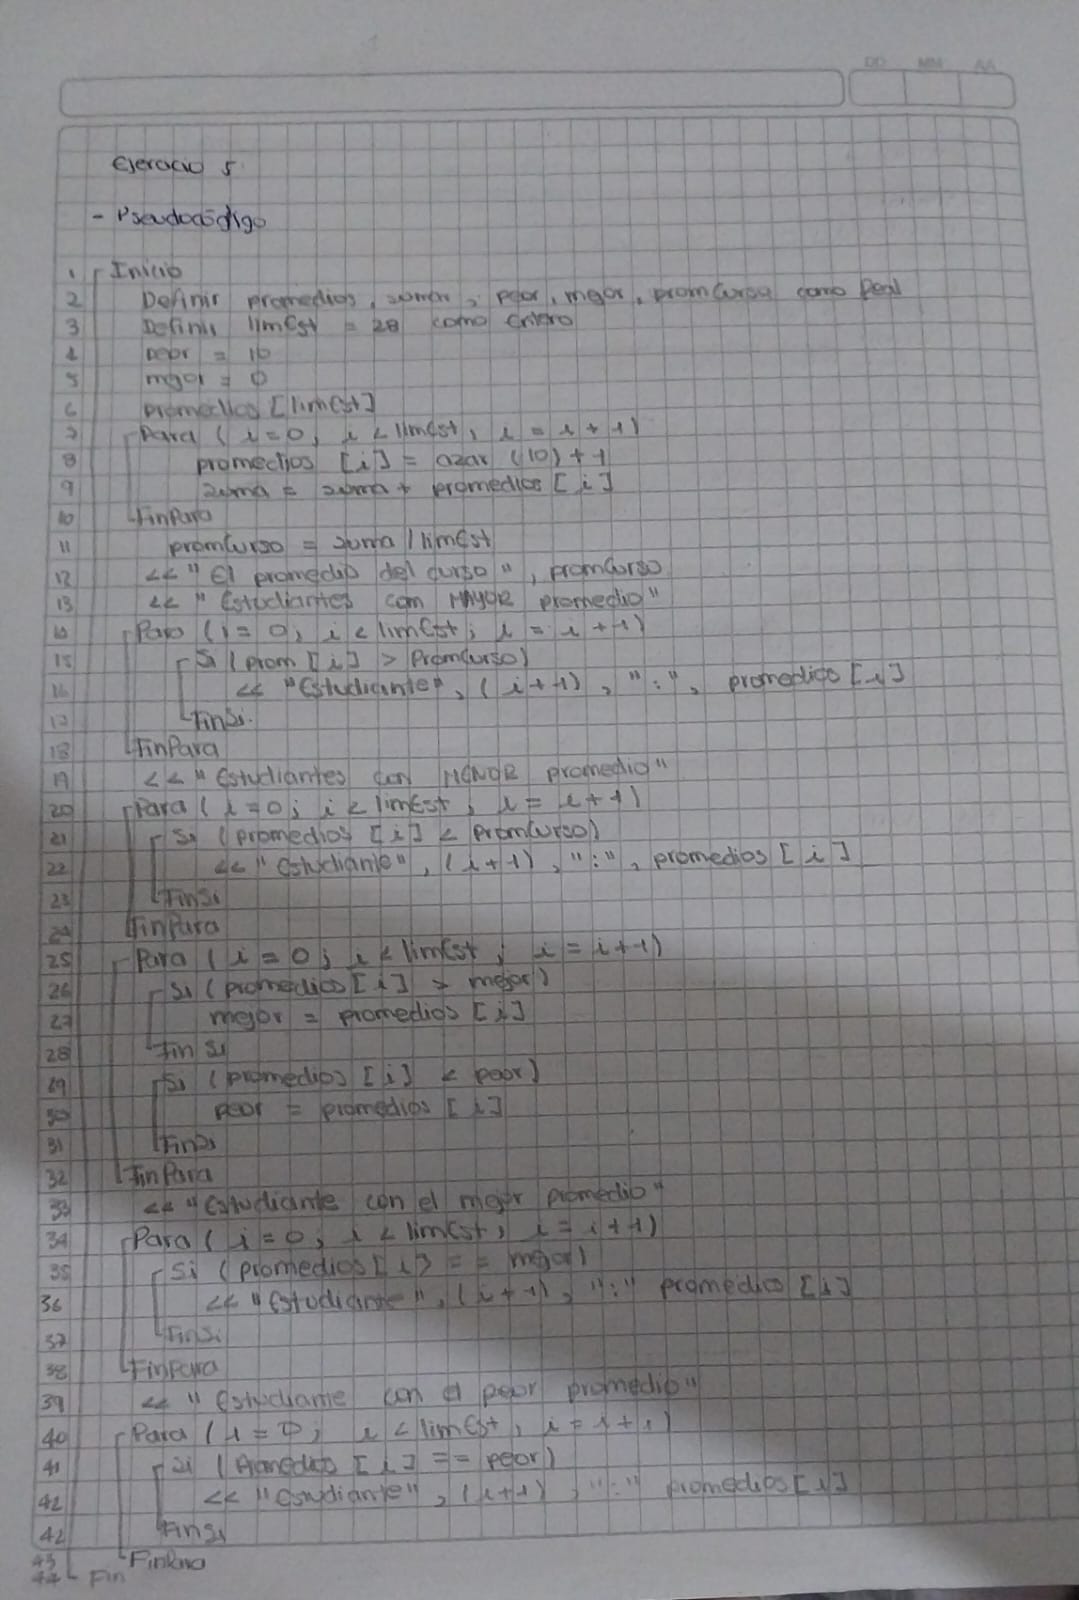 DD MM AA
Ejercicio 5
- Pseudocódigo
1 Inicio
2 Definir promedios, suma, peor, mejor, promCurso como Real
3 Definir limEst = 28 como Entero
4 peor = 10
5 mejor = 0
6 promedios [limEst]
7 Para ( i=0, i < limEst, i = i + 1)
8 promedios [i] = azar (10) + 1
9 suma = suma + promedios [i]
10 FinPara
11 promCurso = suma / limEst
12 << "El promedio del curso", promCurso
13 << "Estudiantes con MAYOR promedio"
14 Para (i = 0, i < limEst; i = i + 1)
15 Si (prom [i] > PromCurso)
16 << "Estudiante", (i++1), ":", promedios [i]
17 FinSi.
18 FinPara
19 << "Estudiantes con MENOR promedio"
20 Para (i=0; i < limEst; i = i+1)
21 Si (promedios [i] < PromCurso)
22 << "Estudiante", (i+1), ":", promedios [i]
23 FinSi
24 FinPara
25 Para (i = 0; i < limEst; i = i+1)
26 Si (promedios [i] > mejor)
27 mejor = promedios [i]
28 Fin Si
29 Si (promedios [i] < peor)
30 peor = promedios [i]
31 FinSi
32 FinPara
33 << "Estudiante con el mejor promedio"
34 Para (i = 0; i < limEst; i = i++1)
35 Si (promedios [i] == mejor)
36 << "Estudiante", (i+1), ":" promedios [i]
37 FinSi
38 FinPara
39 << "Estudiante con el peor promedio"
40 Para (i = 0; i < limEst, i = i+1)
41 Si (Promedios [i] == peor)
42 << "Estudiante", (i+1), ":" promedios [i]
42 FinSi
43 FinPara
44 Fin